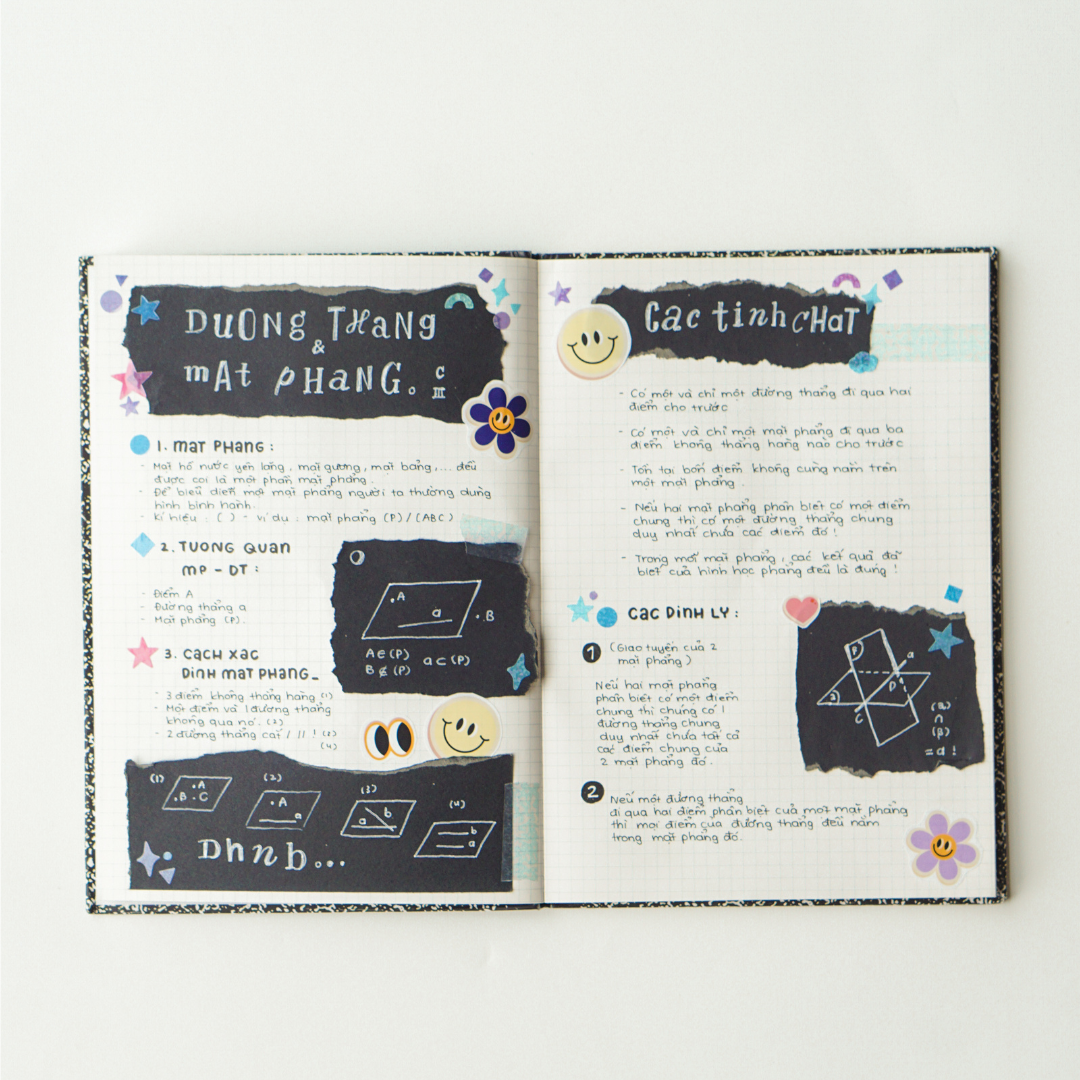 DUONG THANG
&
MAT PHANG. C III
1. MAT PHANG :
- Mặt hồ nước yên lặng, mặt gương, mặt bảng,... đều
được coi là một phần mặt phẳng.
- Để biểu diễn một mặt phẳng người ta thường dùng
hình bình hành.
- Kí hiệu : ( ) - ví dụ : mặt phẳng (P) / (ABC)
2. TUONG QUAN
MP - DT :
- Điểm A
- Đường thẳng a
- Mặt phẳng (P).
.A
a
.B
A ∈ (P)
B ∉ (P)
a ⊂ (P)
3. CACH XAC
DINH MAT PHANG_
- 3 điểm không thẳng hàng (1)
- Một điểm và 1 đường thẳng
không qua nó. (2)
- 2 đường thẳng cắt / // ! (3)
(4)
(1) .A .B .C
(2) .A a
(3) a b
(4) b a
Dhnb...
Cac tinh CHAT
- Có một và chỉ một đường thẳng đi qua hai
điểm cho trước
- Có một và chỉ một mặt phẳng đi qua ba
điểm không thẳng hàng nào cho trước
- Tồn tại bốn điểm không cùng nằm trên
một mặt phẳng .
- Nếu hai mặt phẳng phân biệt có một điểm
chung thì có một đường thẳng chung
duy nhất chứa các điểm đó !
- Trong mỗi mặt phẳng , các kết quả đã
biết của hình học phẳng đều là đúng !
CAC DINH LY :
1 (Giao tuyến của 2
mặt phẳng )
Nếu hai mặt phẳng
phân biệt có một điểm
chung thì chúng có 1
đường thẳng chung
duy nhất chứa tất cả
các điểm chung của
2 mặt phẳng đó .
β
a
D
C
(α)
∩
(β)
= a !
2 Nếu một đường thẳng
đi qua hai điểm phân biệt của một mặt phẳng
thì mọi điểm của đường thẳng đều nằm
trong mặt phẳng đó.